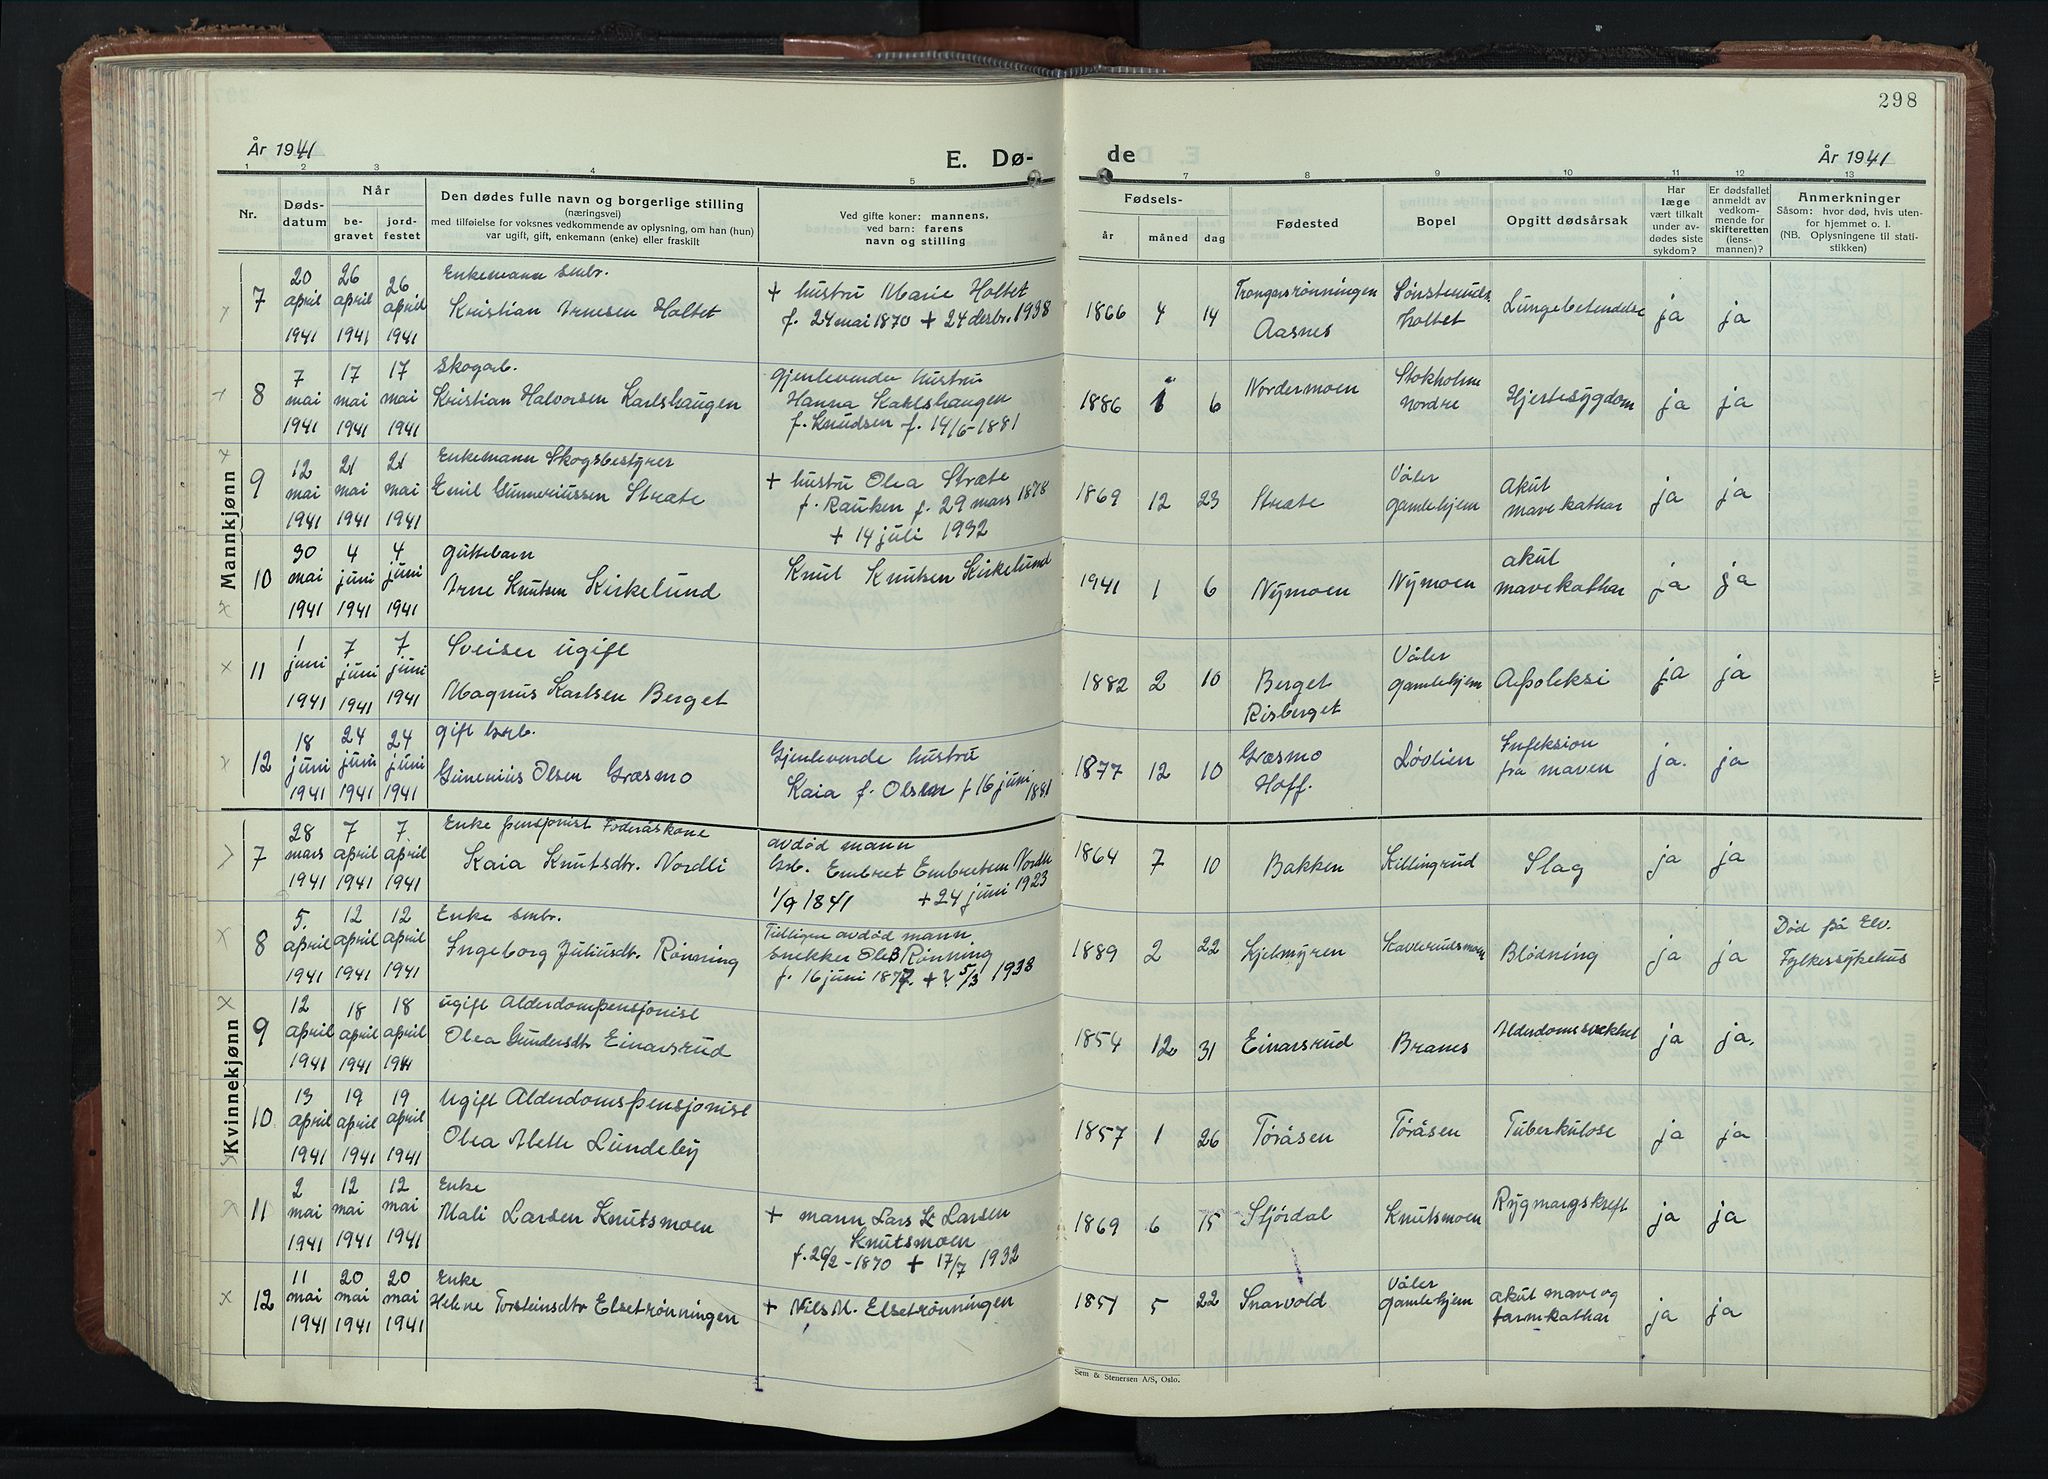 298
År 1941
E. Dø-
de
År 1941
1 2 3 4 5 7 8 9 10 11 12 13
Nr.
Døds-
datum
Når
be-
gravet
jord-
festet
Den dødes fulle navn og borgerlige stilling
(næringsvei)
med tilføielse for voksnes vedkommende av oplysning, om han (hun)
var ugift, gift, enkemann (enke) eller fraskilt
Ved gifte koner: mannens,
ved barn: farens
navn og stilling
Fødsels-
år måned dag
Fødested
Bopel
Opgitt dødsårsak
Har
læge
vært tilkalt
under av-
dødes siste
sykdom?
Er dødsfallet
anmeldt av
vedkom-
mende for
skifteretten
(lens-
mannen)?
Anmerkninger
Såsom: hvor død, hvis uten-
for hjemmet o. l.
(NB. Oplysningene til stati-
stikken)
Mannkjønn
7
20 april 1941
26 april 1941
26 april 1941
Enkemann smbr.
Kristian Arnesen Holtet
+ hustru Marie Holtet
f. 24 mai 1870 + 24 desbr. 1938
1866 4 14
Aasnes
Holtet
Lungebetendelse
ja ja
8
7 mai 1941
17 mai 1941
17 mai 1941
Skogarb.
Kristian Halvorsen Karlshaugen
Gjenlevende hustru
Hanna Kahlshaugen
f. Knudsen f. 14/6-1881
1886 1 6
Nordermoen
Stokholme
Nordre
Hjertesygdom
ja ja
9
12 mai 1941
21 mai 1941
21 mai 1941
Enkemann Skogsbestyrer
Emil Gunneriussen Stræte
+ hustru Olea Stræte
f. Rauken f. 29 mars 1878
+ 14 juli 1932
1869 12 23
Stræte
Våler
gamlehjem
Akut
mavekathar
ja ja
10
30 mai 1941
4 juni 1941
4 juni 1941
Guttebarn
Arne Knutsen Kirkelund
Knut Knutsen Kirkelund
1941 1 6
Nymoen
Nymoen
akut
mavekathar
ja ja
11
1 juni 1941
7 juni 1941
7 juni 1941
Sveiser ugift
Magnus Karlsen Berget
1882 2 10
Berget
Risberget
Våler
gamlehjem
Apoleksi
ja ja
12
18 juni 1941
24 juni 1941
24 juni 1941
gift
Gunenius Olsen Græsmo
Gjenlevende hustru
Kaia f. Olsen f 16 juni 1881
1877 12 10
Græsmo
Hoff.
Løvlien
Infeksion
fra maven
ja. ja
Kvinnekjønn
7
28 mars 1941
7 april 1941
7 april 1941
Enke Foderåskone
Kaia Knutsdtr. Nordli
avdød mann
Embret Embretsen Nordli
1/9 1841 + 24 juni 1923
1864 7 10
Bakken
Killingrud
Slag
ja ja
8
5. april 1941
12 april 1941
12 april 1941
Enke smbr.
Ingeborg Juliusdtr. Rønning
Tidligere avdød mann
snekker Ole B Rønning
f. 16 juni 1877. + 5/3 1938
1889 2 22
Kjelmyren
Blødning
ja ja
Død på Elv.
Fylkessykehus
9
12 april 1941
18 april 1941
18 april 1941
ugift Alderdomspensjonist
Olea Gundersdtr Einarsrud
1854 12 31
Einarsrud
Branes
Alderdomssvækket
ja ja.
10
13 april 1941
19 april 1941
19 april 1941
Ugift Alderdomspensjonist
Olea Alette Lundeby
1857 1 26
Töråsen
Töråsen
Tuberkulose
ja ja
11
2 mai 1941
12 mai 1941
12 mai 1941
Enke
Mali Larsen Knutsmoen
+ mann Lars Larsen
Knutsmoen
f. 26/2-1870 + 17/7 1932
1869 6 15
Stjördal
Knutsmoen
Rygmargskreft
ja ja
12
11 mai 1941
20 mai 1941
20 mai 1941
Enke
Helene Torsteinsdtr Elsetrønningen
+ Nils M. Elsetrønningen
1851 5 22
Snarvold
Våler
Gamlehjem
akut mave og
tarmkathar
ja ja
Sem & Stenersen A/S, Oslo.